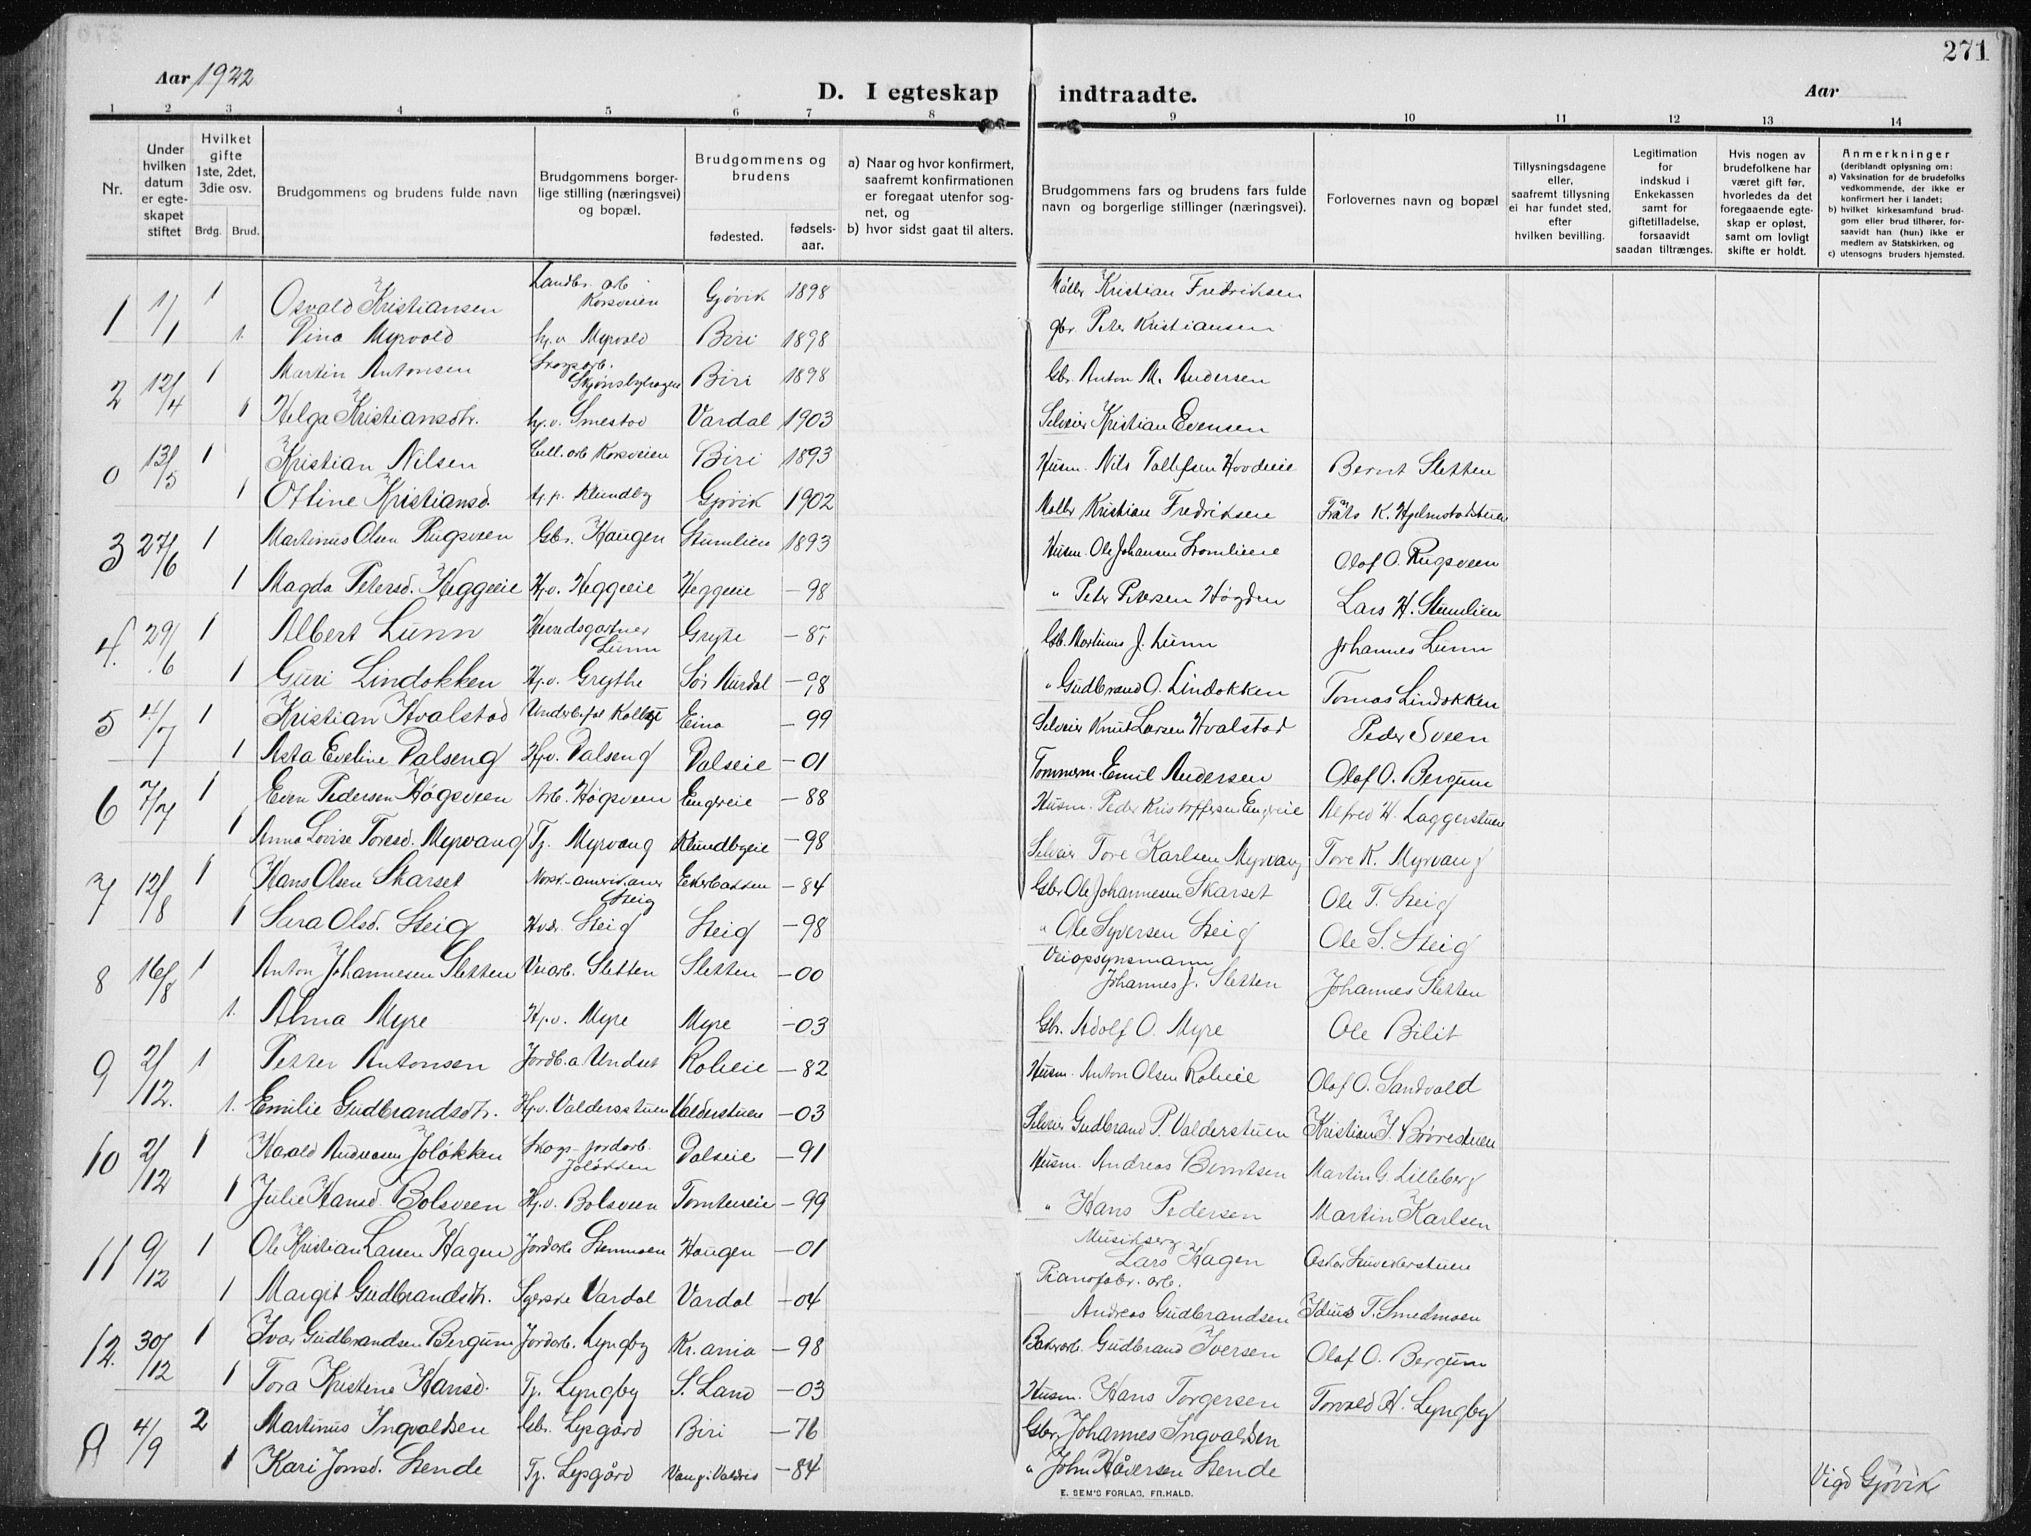 271
Aar 1922
D. I egteskap indtraadte.
Aar
1 2 3 4 5 6 7 8 9 10 11 12 13 14
Nr.
Under hvilken datum er egteskapet stiftet
Hvilket gifte 1ste, 2det, 3die osv.
Brdg. Brud.
Brudgommens og brudens fulde navn
Brudgommens borgerlige stilling (næringsvei) og bopæl.
Brudgommens og brudens
fødested.
fødselsaar.
a) Naar og hvor konfirmert, saafremt konfirmationen er foregaat utenfor sognet, og
b) hvor sidst gaat til alters.
Brudgommens fars og brudens fars fulde navn og borgerlige stillinger (næringsvei).
Forlovernes navn og bopæl
Tillysningsdagene eller, saafremt tillysning ei har fundet sted, efter hvilken bevilling.
Legitimation for indskud i Enkekassen samt for giftetilladelse, forsaavidt saadan tiltrænges.
Hvis nogen av brudefolkene har været gift før, hvorledes da det foregaaende egteskap er opløst, samt om lovligt skifte er holdt.
Anmerkninger
(deriblandt oplysning om:
a) Vaksination for de brudefolks vedkommende, der ikke er konfirmert her i landet;
b) hvilket kirkesamfund brudgom eller brud tilhører, forsaavidt han (hun) ikke er medlem av Statskirken, og
c) utensogns bruders hjemsted.
1 1/1 1 Osvald Kristiansen Landbr. arb. Korsveien Gjøvik 1898 Møller Kristian Fredriksen
1. Vina Myrvold hj.v. Myrvold Biri 1898 gbr. Peter Kristiansen
2 12/4 1 Martin Antonsen Skogsarb. Skjønsbyhagen Biri 1898 Gbr. Anton M. Andersen
1 Helga Kristiansdtr. hj.v. Smestad Vardal 1903 Selveier Kristian Evensen
0 13/5 1 Kristian Nilsen Cell. arb Korsveien Biri 1893 Husm. Nils Tollefsen Hovdeie Bernt Sletten
1 Otline Kristiansd. hj.p. Klundby Gjøvik 1902 Møller Kristian Fredriksen K. Hjelmstadstuen
3 27/6 1 Martinus Olsen Rugsveen Gbr. Haugen Stumlien 1893 Husm. Ole Johansen Olof O. Rugsveen
1 Magda Petersd. Heggeeie Hj.v. Heggeeie Heggeeie -98 " Peter Petersen Høgden Lars H. Stumlien
4. 29/6 1 Albert Lunn Lunn Gryte -87 Gb. Martinus J. Lunn Johannes Lunn
1 Guri Lindokken Hj.v. Grythe Sør Aurdal -98 " Gudbrand O. Lindokken Tomas Lindokken
5 4/7 1 Kristian Hvalstad Eina -99 Selveier Knut Larsen Hvalstad Peder Sveen
1 Asta Eveline Dalseng Hj.v. Dalseng Dalseie -01 Tømmerm. Emil Andersen Olof O. Bergum
6 7/7 1 Even Pedersen Høgsveen Arb. Høgsveen Engeeie -88 Husm. Peder Kristoffersen Engeeie Alfred H. Laggerstuen
1 Anna Lovise Toresd. Myrvang Tj. Myrvang Klundbyeie -98 Selveier Tore Karlsen Myrvang Tore K. Myrvang
7 12/8 1 Hans Olsen Skarset Norsk-amerikaner Steig Eskerbakken -84 Gbr Ole Johannesen Skarset Ole T. Steig
1 Sara Olsd. Steig Hvdr. Steig Steig -98 " Ole Syversen Steig Ole S. Steig
8 16/8 1 Anton Johannesen Sletten Veiarb. Sletten Sletten -00 Veiopsynsmann Johannes J. Sletten Johannes Sletten
1. Alma Myre Hj.v. Myre Myre -03 Gbr. Adolf O. Myre Ole Bilit
9 2/12. 1 Petter Antonsen Jordb.a. Undset Roheie -82 Husm. Anton Olsen Roheie Olof O. Sandvold
1. Emilie Gudbrandsdtr. Hj.v. Valdersstuen Valderstuen -03 Selveier Gudbrand P. Valderstuen Kristian J. Børrestuen
10 2/12 1 Harald Andreasen Joløkken Skogs- jordarb. Joløkken Dalseie -91 Husm. Andreas Berntsen Martin G. Lilleberg
1 Julie Hansd. Bolsveen Hj.v. Bolsveen Tomteneie -99 " Hans Pedersen Martin Karlsen
11 9/12 1 Ole Kristian Larsen Hagen Jordarb Stenmoen Haugen -01 Musikserg. Lars Hagen
1 Margit Gudbrandsdtr. Syerske Vardal Vardal -04 Pianofabr. arb. Andreas Gudbrandsen T. Smedmoen
12. 30/12 1 Ivar Gudbrandsen Bergum Jordarb. Lyngby Kr.ania -98 Gudbrand Iversen Olaf O. Bergum
1 Tora Kristine Hansd. Tj. Lyngby S. Land -03 Husm. Hans Torgersen Torvald H. Lyngby
A 4/9 2 Martinus Ingvaldsen Gbr. Lysgård Biri -76 Gbr. Johannes Ingvaldsen
1 Kari Jonsd. Stende Tj. Lysgård Vang i Valdres -84 " John Håversen Stende Vigd Gjøvik
E. SEM'S FORLAG, FR.HALD.